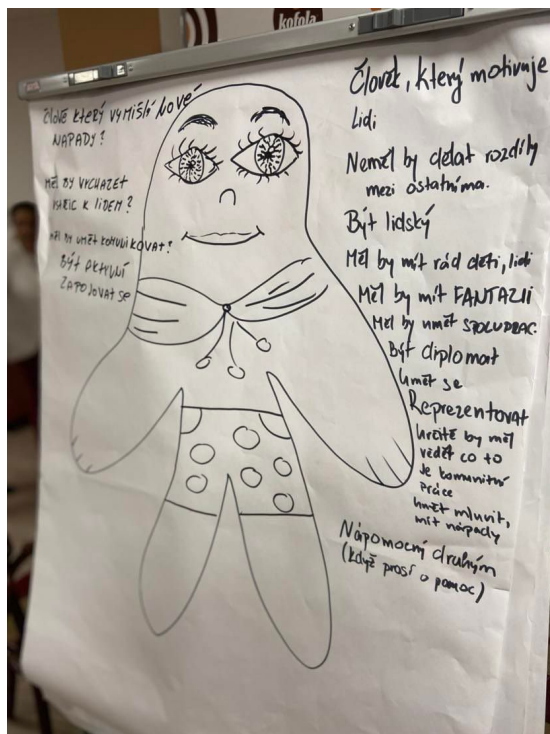 kofola
ČLOVĚ KTERÝ VYMIŠLÍ NOVÉ
NAPADY?
MĚL BY VYCHAZET
VSTŘÍC K LIDEM?
MĚL BY UMĚT KOMUNIKOVAT?
BÝT AKTIVNÍ
ZAPOJOVAT SE
Člověk, který motivuje
Lidi
Neměl by dělat rozdíly
mezi ostatníma.
Být lidský
Měl by mít rád děti, lidi
Měl by mít FANTAZII
Měl by umět SPOLUPRAC.
Být diplomat
Umět se
Reprezentovat
určitě by měl
vědět co to
je komunitní
práce
umět mluvit,
mít nápady
Nápomocný druhým
(když prosí o pomoc)